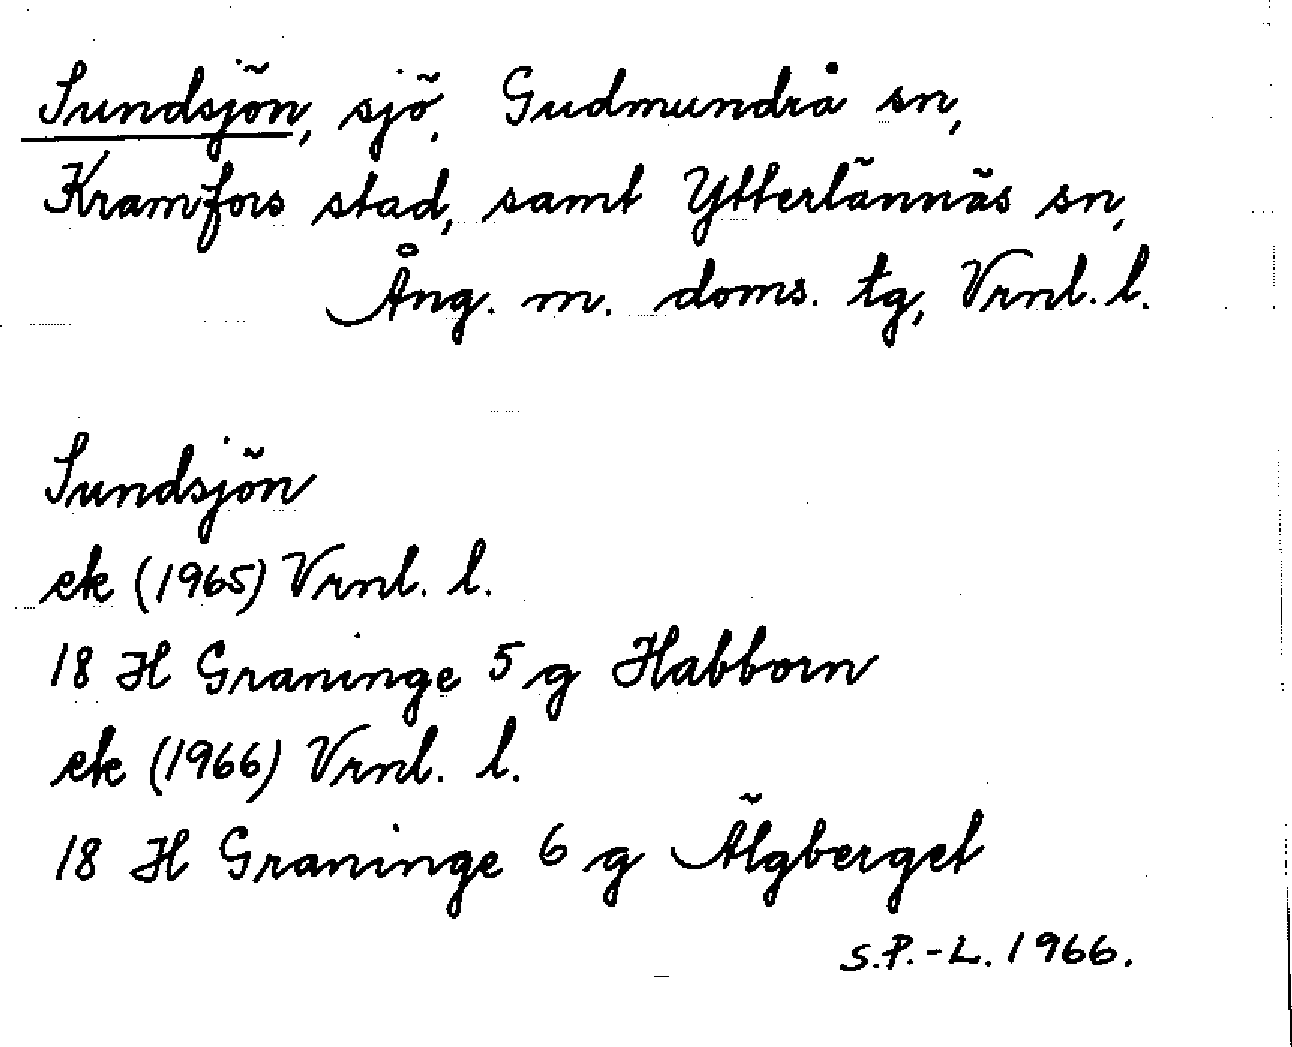 Sundsjön, sjö, Gudmundrå sn,
Kramfors stad, samt Ytterlännäs sn,
Ång. m. doms. tg, Vrnl. l.
Sundsjön
ek (1965) Vrnl. l.
18 H Graninge 5 g Habborn
ek (1966) Vrnl. l.
18 H Graninge 6 g Älgberget
S.P.-L. 1966.